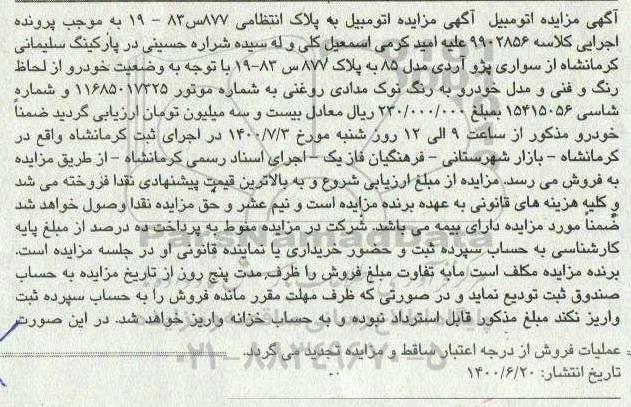 آگهی مزایده اتومبیل   آگهی مزایده اتومبیل به پلاک انتظامی ۸۷۷س۸۳ - ۱۹ به موجب پرونده
اجرایی کلاسه ۹۹۰۲۸۵۶ علیه امید کرمی اسمعیل کلی و له سیده شراره حسینی در پارکینگ سلیمانی
کرمانشاه از سواری پژو آردی مدل ۸۵ به پلاک ۸۷۷ س ۸۳-۱۹ با توجه به وضعیت خودرو از لحاظ
رنگ و فنی و مدل خودرو به رنگ نوک مدادی روغنی به شماره موتور ۱۱۶۸۵۰۱۷۳۲۵ و شماره
شاسی ۱۵۴۱۵۰۵۶ بمبلغ ۲۳۰/۰۰۰/۰۰۰ ریال معادل بیست و سه میلیون تومان ارزیابی گردید ضمناً
خودرو مذکور از ساعت ۹ الی ۱۲ روز شنبه مورخ ۱۴۰۰/۷/۳ در اجرای ثبت کرمانشاه واقع در
کرمانشاه - بازار شهرستانی - فرهنگیان فاز یک - اجرای اسناد رسمی کرمانشاه - از طریق مزایده
به فروش می رسد. مزایده از مبلغ ارزیابی شروع و به بالاترین قیمت پیشنهادی نقدا فروخته می شد
و کلیه هزینه های قانونی به عهده برنده مزایده است و نیم عشر و حق مزایده نقدا وصول خواهد شد
ضمناً مورد مزایده دارای بیمه می باشد. شرکت در مزایده منوط به پرداخت ده درصد از مبلغ پایه
کارشناسی به حساب سپرده ثبت و حضور خریداری یا نماینده قانونی او در جلسه مزایده است.
برنده مزایده مکلف است مابه تفاوت مبلغ فروش را ظرف مدت پنج روز از تاریخ مزایده به حساب
صندوق ثبت تودیع نماید و در صورتی که ظرف مهلت مقرر مانده فروش را به حساب سپرده ثبت
واریز نکند مبلغ مذکور قابل استرداد نبوده و به حساب خزانه واریز خواهد شد. در این صورت
عملیات فروش از درجه اعتبار ساقط و مزایده تجدید می گردد.
تاریخ انتشار: ۱۴۰۰/۶/۲۰
ParsNamadData
۰۲۱-۸۸۳۴۹۶۷۰-۵